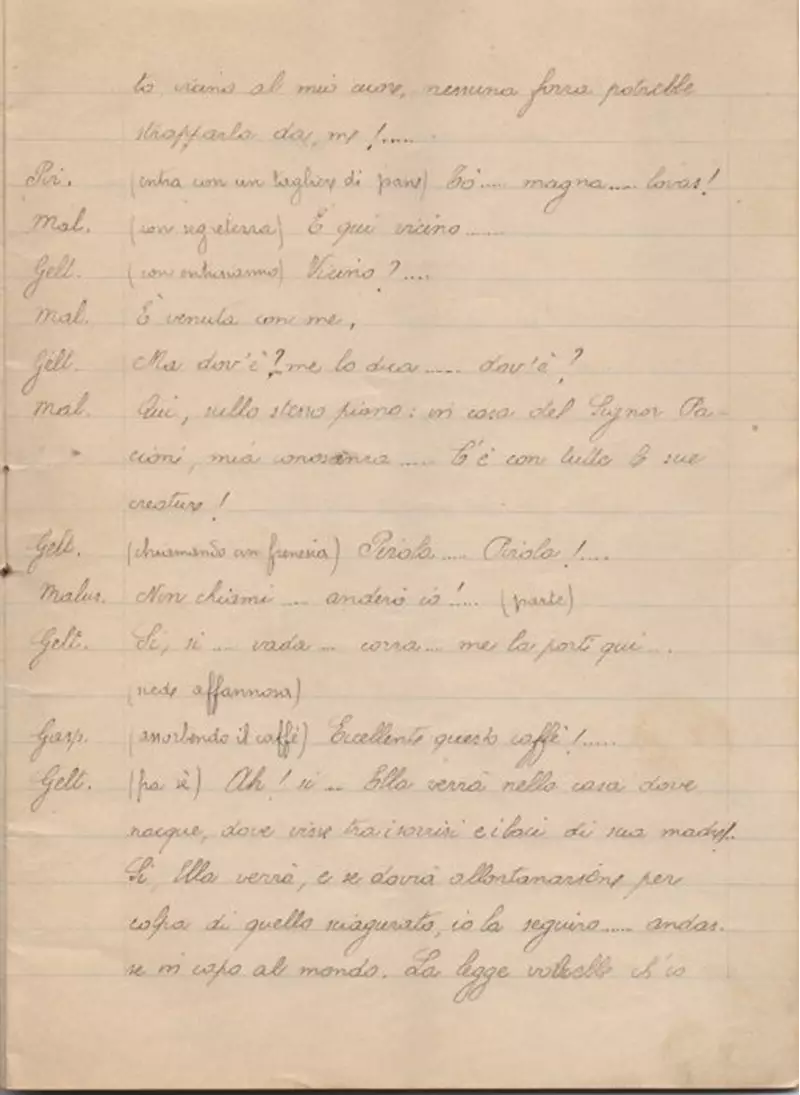 to vicino al mio cuore, nessuna forza potrebbe
strapparla da me!.....
Pir. (entra con un tagliere di pane) Tò..... magna..... lovas!
Mal. (con segretezza) È qui vicino.......
Gelt. (con entusiasmo) Vicino?....
Mal. È venuta con me,
Gelt. Ma dov'è? me lo dica..... dov'è?
Mal. Qui, sullo stesso piano: in casa del Signor Pa-
cioni, mia conoscenza..... C'è con tutte le sue
creature!
Gelt. (chiamando con frenesia) Pirola..... Pirola!....
Malur. Non chiami.... anderò io!.... (parte)
Gelt. Si, si.... vada... corra... me la porti qui....
(siede affannosa)
Gasp. (assorbendo il caffè) Eccellente questo caffè!.....
Gelt. (fra sè) Ah! si... Ella verrà nella casa dove
nacque, dove visse tra i sorrisi e i baci di sua madre.
Si, Ella verrà, e se dovrà allontanarsene per
colpa di quello sciagurato, io la seguirò..... andas-
se in capo al mondo. La legge vorrebbe ch'io